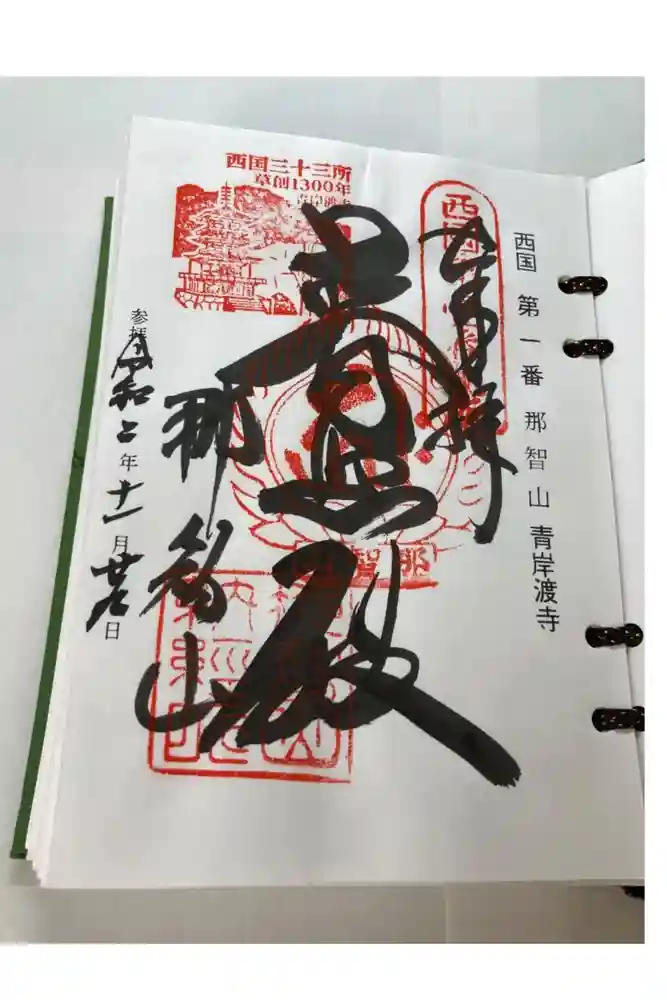 西国 第一番 那智山 青岸渡寺
奉拝
普照殿
那智山
西国三十三所
草創1300年
参拝
令和二年十一月廿九日